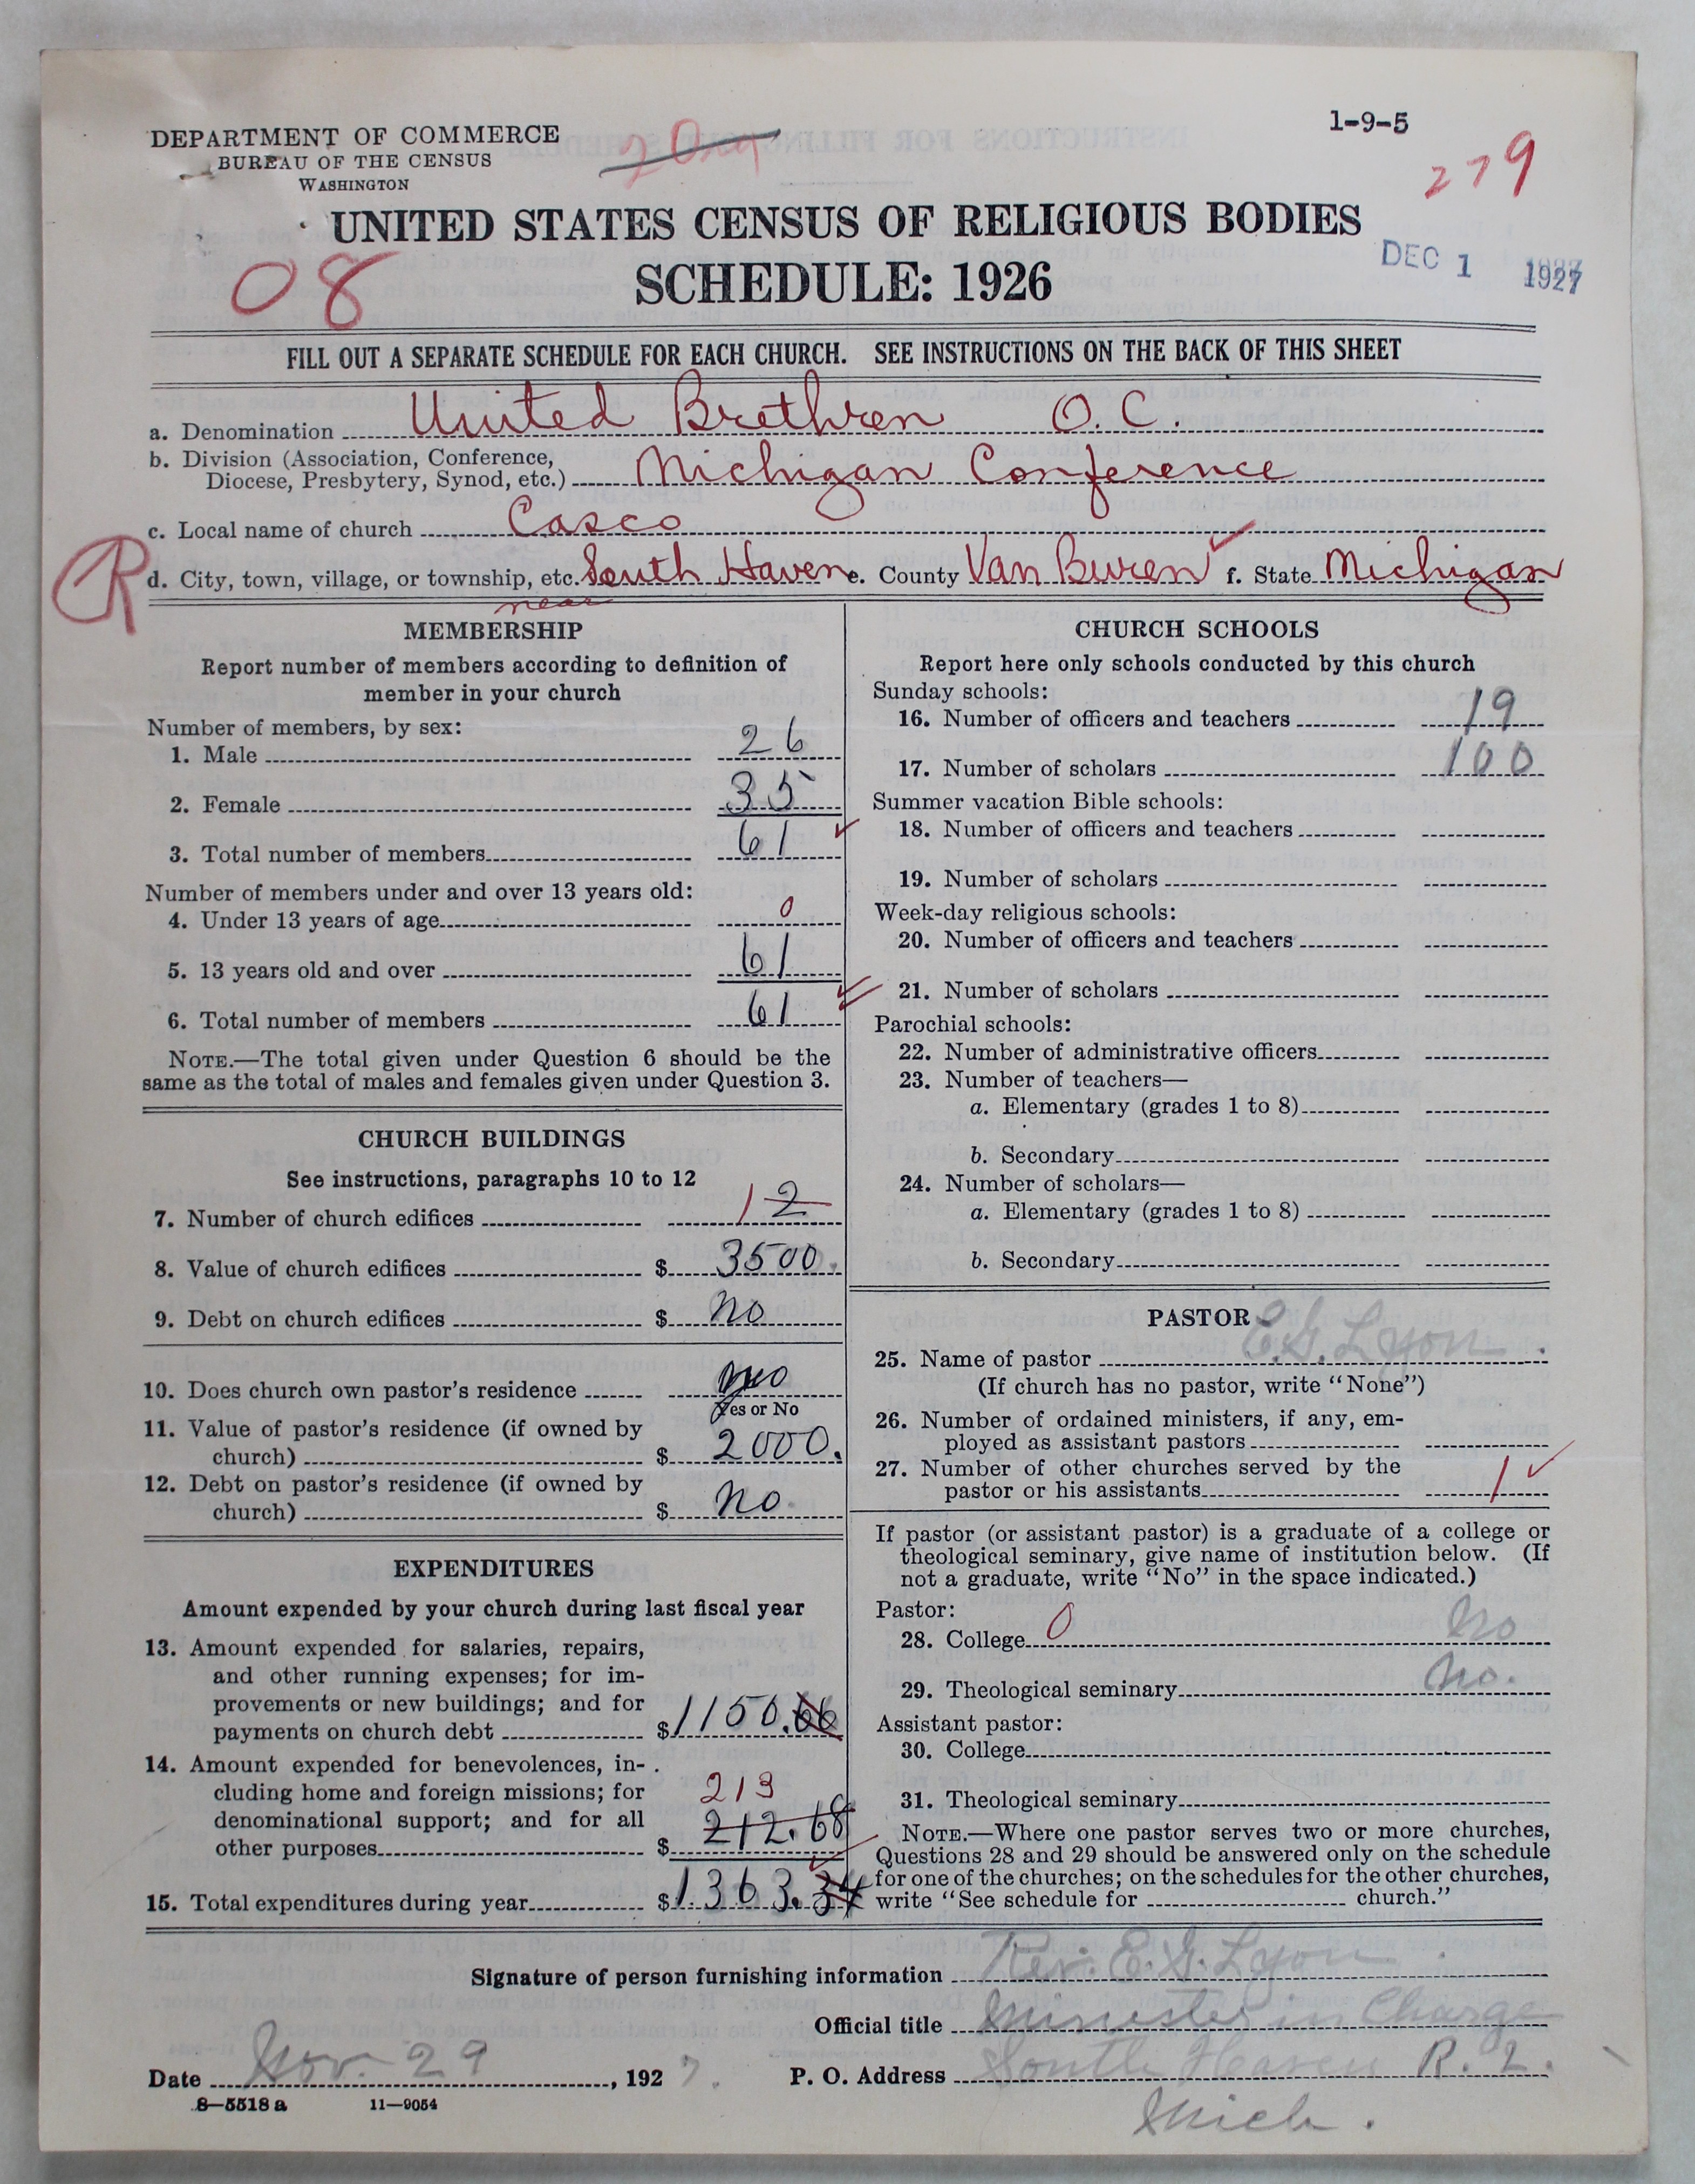 1-9-5
DEPARTMENT OF COMMERCE
BUREAU OF THE CENSUS
WASHINGTON
279
UNITED STATES CENSUS OF RELIGIOUS BODIES
SCHEDULE: 1926
DEC 1 1927
08
FILL OUT A SEPARATE SCHEDULE FOR EACH CHURCH. SEE INSTRUCTIONS ON THE BACK OF THIS SHEET
a. Denomination United Brethren O.C.
b. Division (Association, Conference,
Diocese, Presbytery, Synod, etc.) Michigan Conference
c. Local name of church Casco
R
d. City, town, village, or township, etc. South Haven e. County Van Buren f. State Michigan
near
MEMBERSHIP
Report number of members according to definition of
member in your church
Number of members, by sex:
1. Male 26
2. Female 35
3. Total number of members 61
Number of members under and over 13 years old:
4. Under 13 years of age 0
5. 13 years old and over 61
6. Total number of members 61
NOTE.—The total given under Question 6 should be the
same as the total of males and females given under Question 3.
CHURCH BUILDINGS
See instructions, paragraphs 10 to 12
7. Number of church edifices 1 2
8. Value of church edifices $ 3500.
9. Debt on church edifices $ no
10. Does church own pastor's residence no
Yes or No
11. Value of pastor's residence (if owned by
church) $ 2000.
12. Debt on pastor's residence (if owned by
church) $ no.
EXPENDITURES
Amount expended by your church during last fiscal year
13. Amount expended for salaries, repairs,
and other running expenses; for im-
provements or new buildings; and for
payments on church debt $ 1150.66
14. Amount expended for benevolences, in-
cluding home and foreign missions; for
denominational support; and for all
other purposes $ 213
212.68
15. Total expenditures during year $ 1363.34
CHURCH SCHOOLS
Report here only schools conducted by this church
Sunday schools:
16. Number of officers and teachers 19
17. Number of scholars 100
Summer vacation Bible schools:
18. Number of officers and teachers
19. Number of scholars
Week-day religious schools:
20. Number of officers and teachers
21. Number of scholars
Parochial schools:
22. Number of administrative officers
23. Number of teachers—
a. Elementary (grades 1 to 8)
b. Secondary
24. Number of scholars—
a. Elementary (grades 1 to 8)
b. Secondary
PASTOR
25. Name of pastor E.G. Lyon.
(If church has no pastor, write "None")
26. Number of ordained ministers, if any, em-
ployed as assistant pastors
27. Number of other churches served by the
pastor or his assistants 1
If pastor (or assistant pastor) is a graduate of a college or
theological seminary, give name of institution below. (If
not a graduate, write "No" in the space indicated.)
Pastor:
28. College 0 No
29. Theological seminary No.
Assistant pastor:
30. College
31. Theological seminary
NOTE.—Where one pastor serves two or more churches,
Questions 28 and 29 should be answered only on the schedule
for one of the churches; on the schedules for the other churches,
write "See schedule for church."
Signature of person furnishing information Rev. E. G. Lyon.
Official title Minister in Charge
Date Nov. 29, 1927. P. O. Address South Haven R. 2.
Mich.
8-5518 a 11-9054